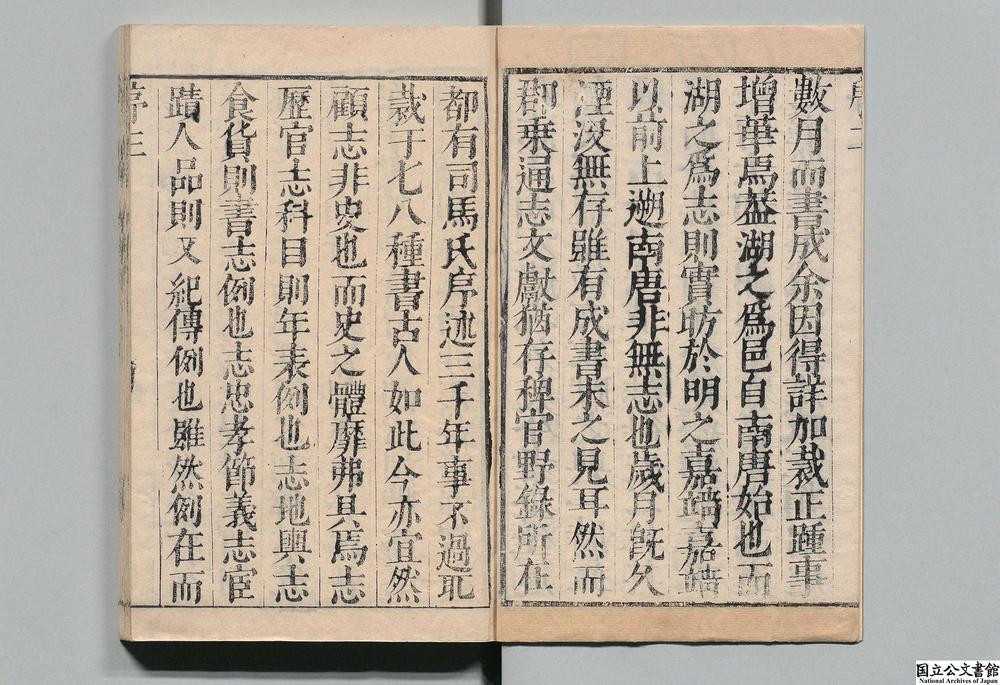 數月而書成余因得詳加裁正踵事
增華焉葢湖之爲邑自南唐始也而
湖之爲志則實昉於明之嘉靖嘉靖
以前上遡南唐非無志也歲月旣久
湮没無存雖有成書未之見耳然而
郡乗通志文獻猶存稗官野錄所在
都有司馬氏序述三千年事不過取
裁于七八種書古人如此今亦宜然
顧志非史也而史之體靡弗具焉志
歴官志科目則年表例也志地輿志
食貨則書志例也志忠孝節義志宦
蹟人品則又紀傳例也雖然例在而
序三
国立公文書館
National Archives of Japan